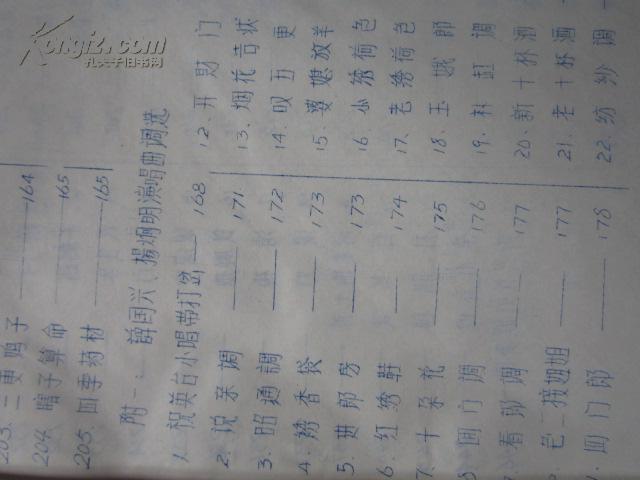 203. 三更鸡子 ——164
204. 瞎子算命 ——165
205. 四季药材 ——165
附一: 薛国兴、杨炳明演唱曲调选
1. 祝英台小唱带打岔 —168
2. 说亲调 ——171
3. 昭通調 ——172
4. 绣香袋 ——173
5. 进郎房 ——173
6. 红绣鞋 ——174
7. 十朵花 ——175
8 回门调 ——176
看郎调 ——177
包二接妞姐 ——177
回门郎 ——178
12. 开财门
13. 烟花告状
14. 叹五更
15. 婆媳放羊
16. 小绣荷包
17. 老绣荷包
18. 玉娥郎
19. 补缸调
20. 新十杯酒
21. 老十杯酒
22. 纺纱调
Kongfz.com
孔夫子旧书网